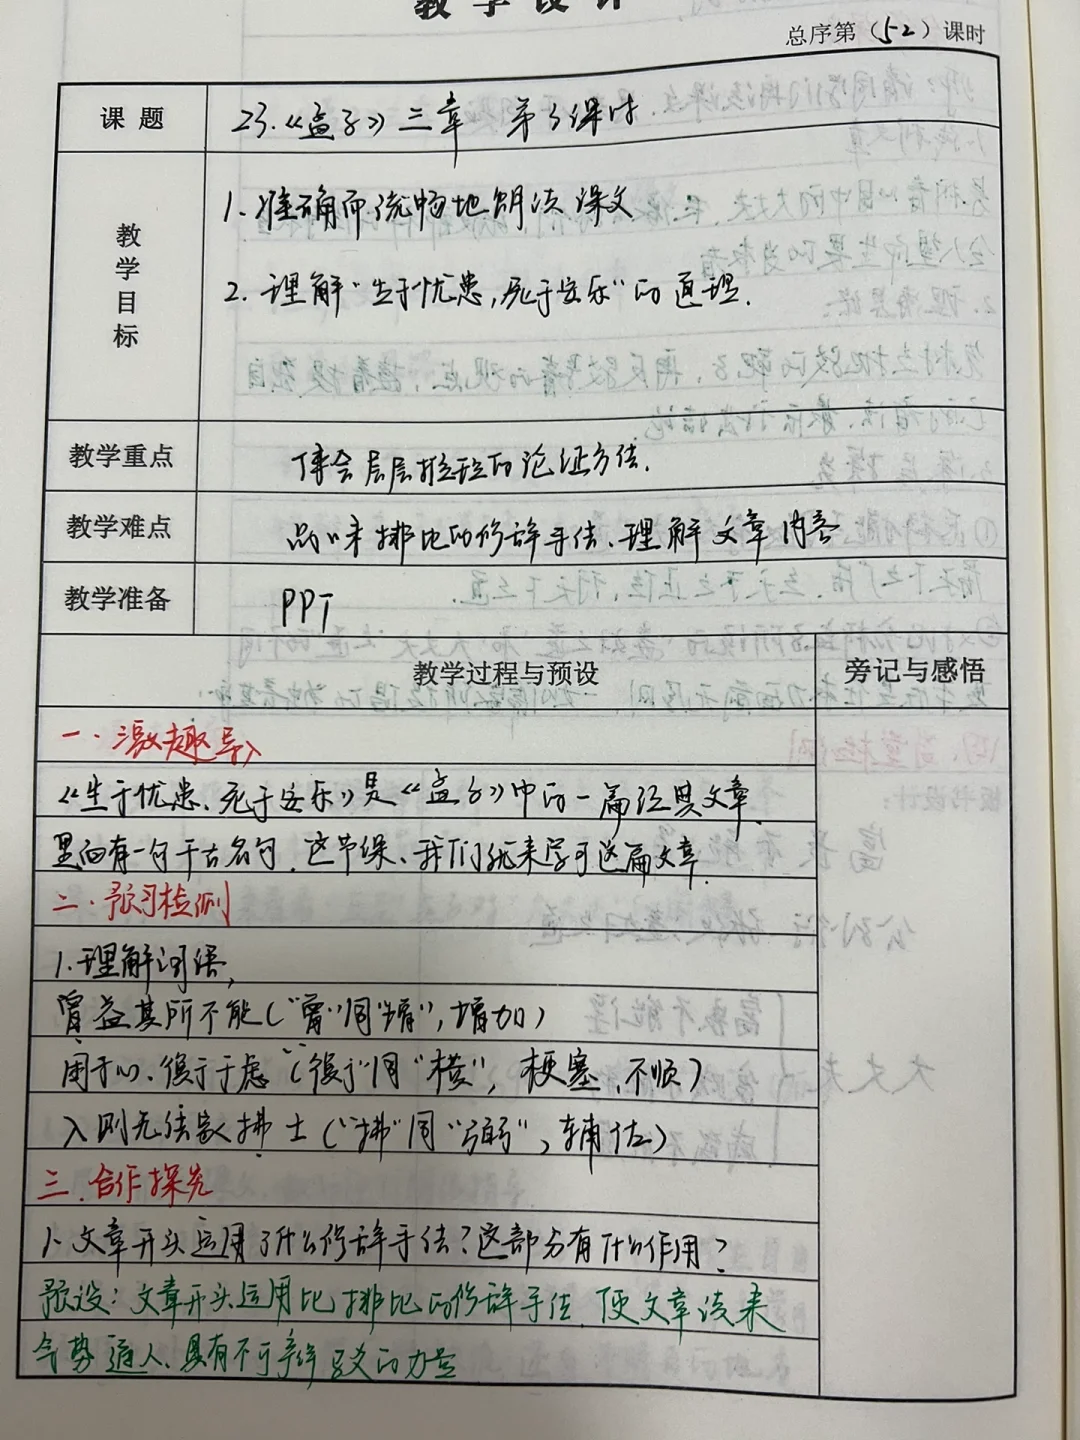 教学设计
总序第（52）课时
课题
23.《孟子》三章 第3课时
教学目标
1.准确而流畅地朗读课文
2.理解"生于忧患,死于安乐"的道理.
教学重点
体会层层推理的论证方法.
教学难点
品味排比的修辞手法、理解文章内容
教学准备
PPT
教学过程与预设
旁记与感悟
一.激趣导入
《生于忧患、死于安乐》是《孟子》中的一篇经典文章.
里面有一句千古名句.这节课、我们就来学习这篇文章.
二.预习检测
1.理解词语,
曾益其所不能("曾"同"增",增加)
困于心、衡于虑("衡"同"横",梗塞,不顺)
入则无法家拂士("拂"同"弼",辅佐)
三.合作探究
1、文章开头运用了什么修辞手法?这部分有什么作用?
预设:文章开头运用比排比的修辞手法,使文章读来
气势逼人、具有不可辩驳的力量